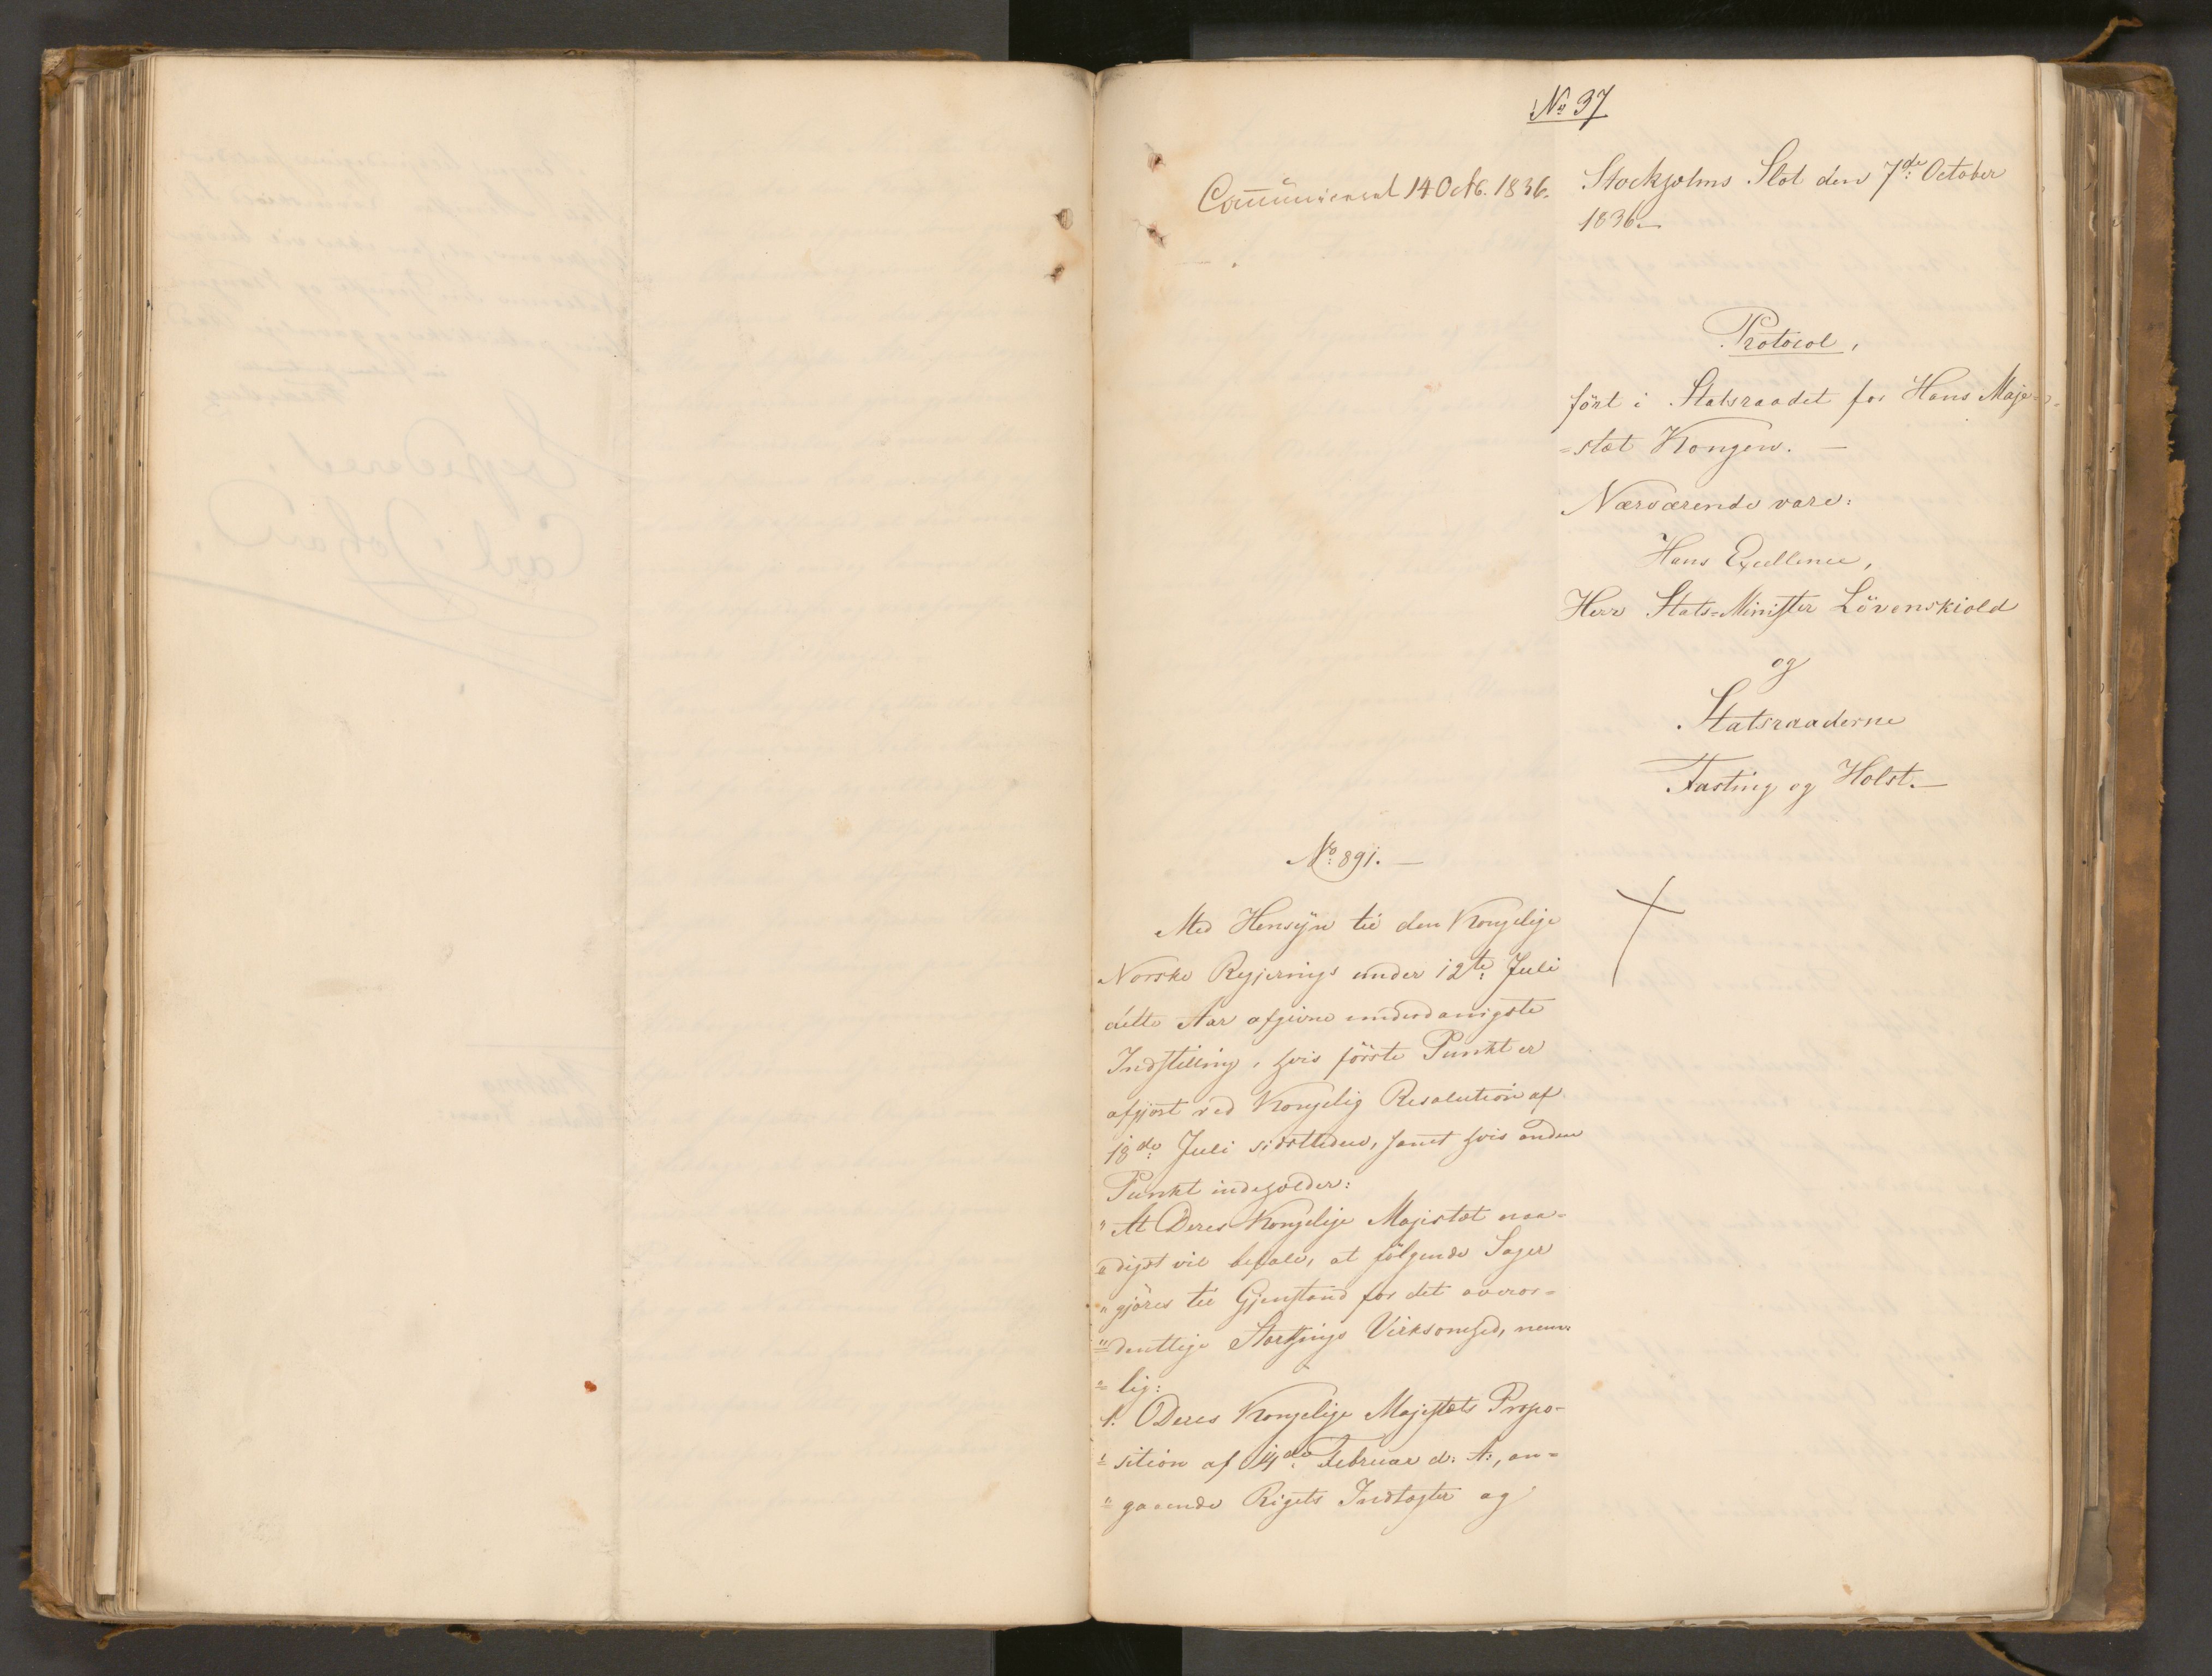 No 37
Communiceret 14 Octb. 1836.
Stockholms Slot den 7de October
1836.
Protocol,
fört i Statsraadet for Hans Maje=
=stæt Kongen. —
Nærværende vare:
Hans Excellence,
Herr Stats=Minister Lövenskiold
og
Statsraaderne
Fasting og Holst. —
No 891. —
Med Hensÿn til den Kongelige
Norske Regjerings under 12te Juli
dette Aar afgivne underdanigste
Indstilling, hvis förste Punkt er
afgjort ved Kongelig Resolution af
18de Juli sidstleden, samt hvis anden
Punkt indeholder:
"At Deres Kongelige Majestæt naa=
"digst vil befale, at fölgende Sager
"gjöres til Gjenstand for det overor=
"dentlige Storthings Virksomhed, nem=
"lig:
1. Deres Kongelige Majestæts Propo=
"sition af 4de Februar d: A:, an=
"gaaende Rigets Indtægter og